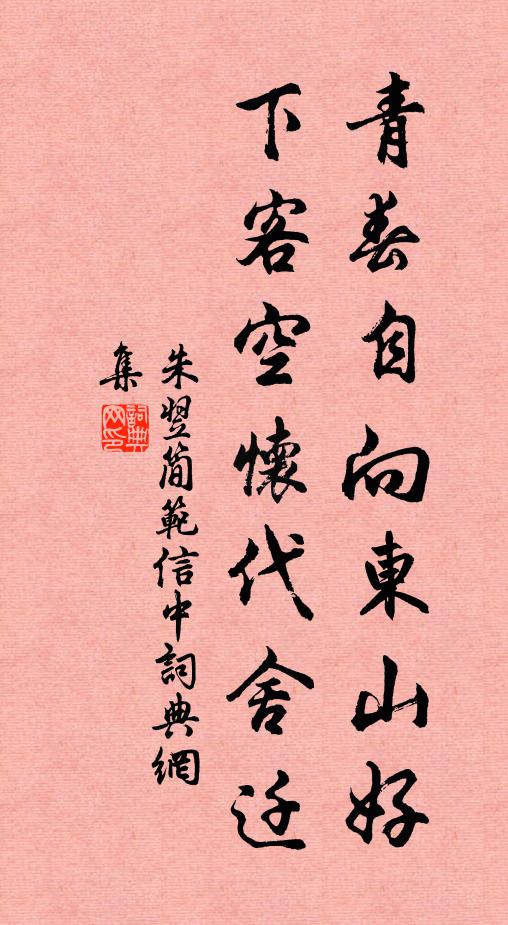 青春自向東山好
下客空懷代舍迁
朱翌簡範信中詞典網
集
詞典網印